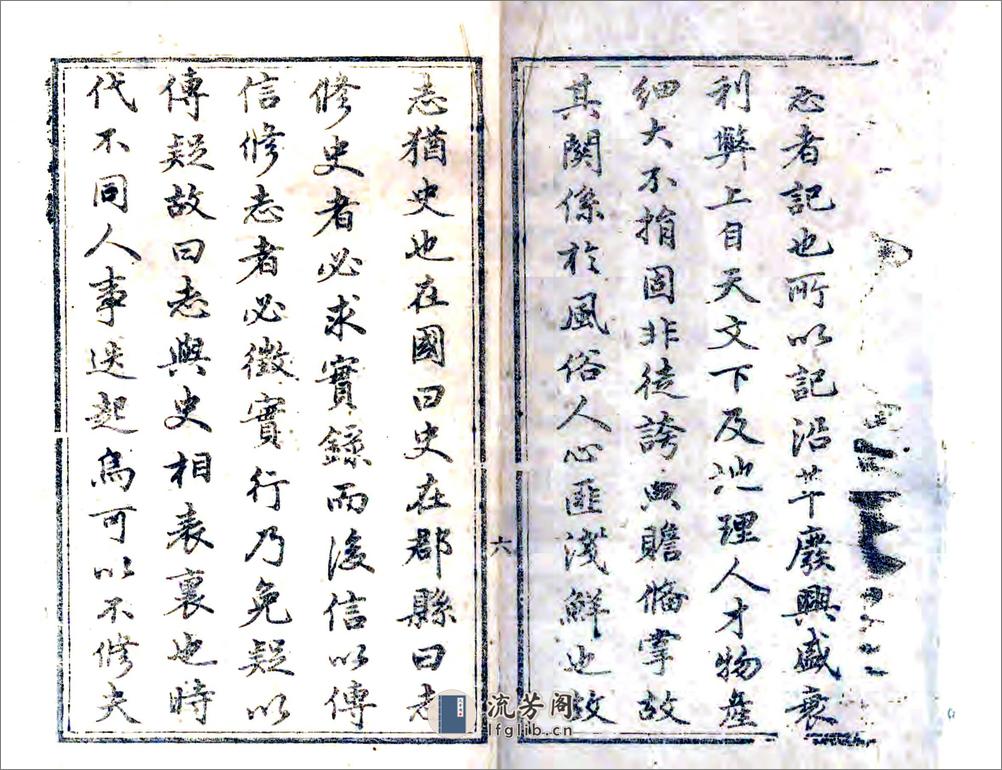 志者記也所以記沿革廢興盛衰
利弊上自天文下及地理人才物產
細大不捐固非徒誇典贍俻掌故
其関係於風俗人心匪淺鮮也故
六
志猶史也在國曰史在郡縣曰志
修史者必求實錄而後信以傳
信修志者必徵實行乃免疑以
傳疑故曰志與史相表裏也時
代不同人事迭起烏可以不修夫
流芳阁
lfglib.cn